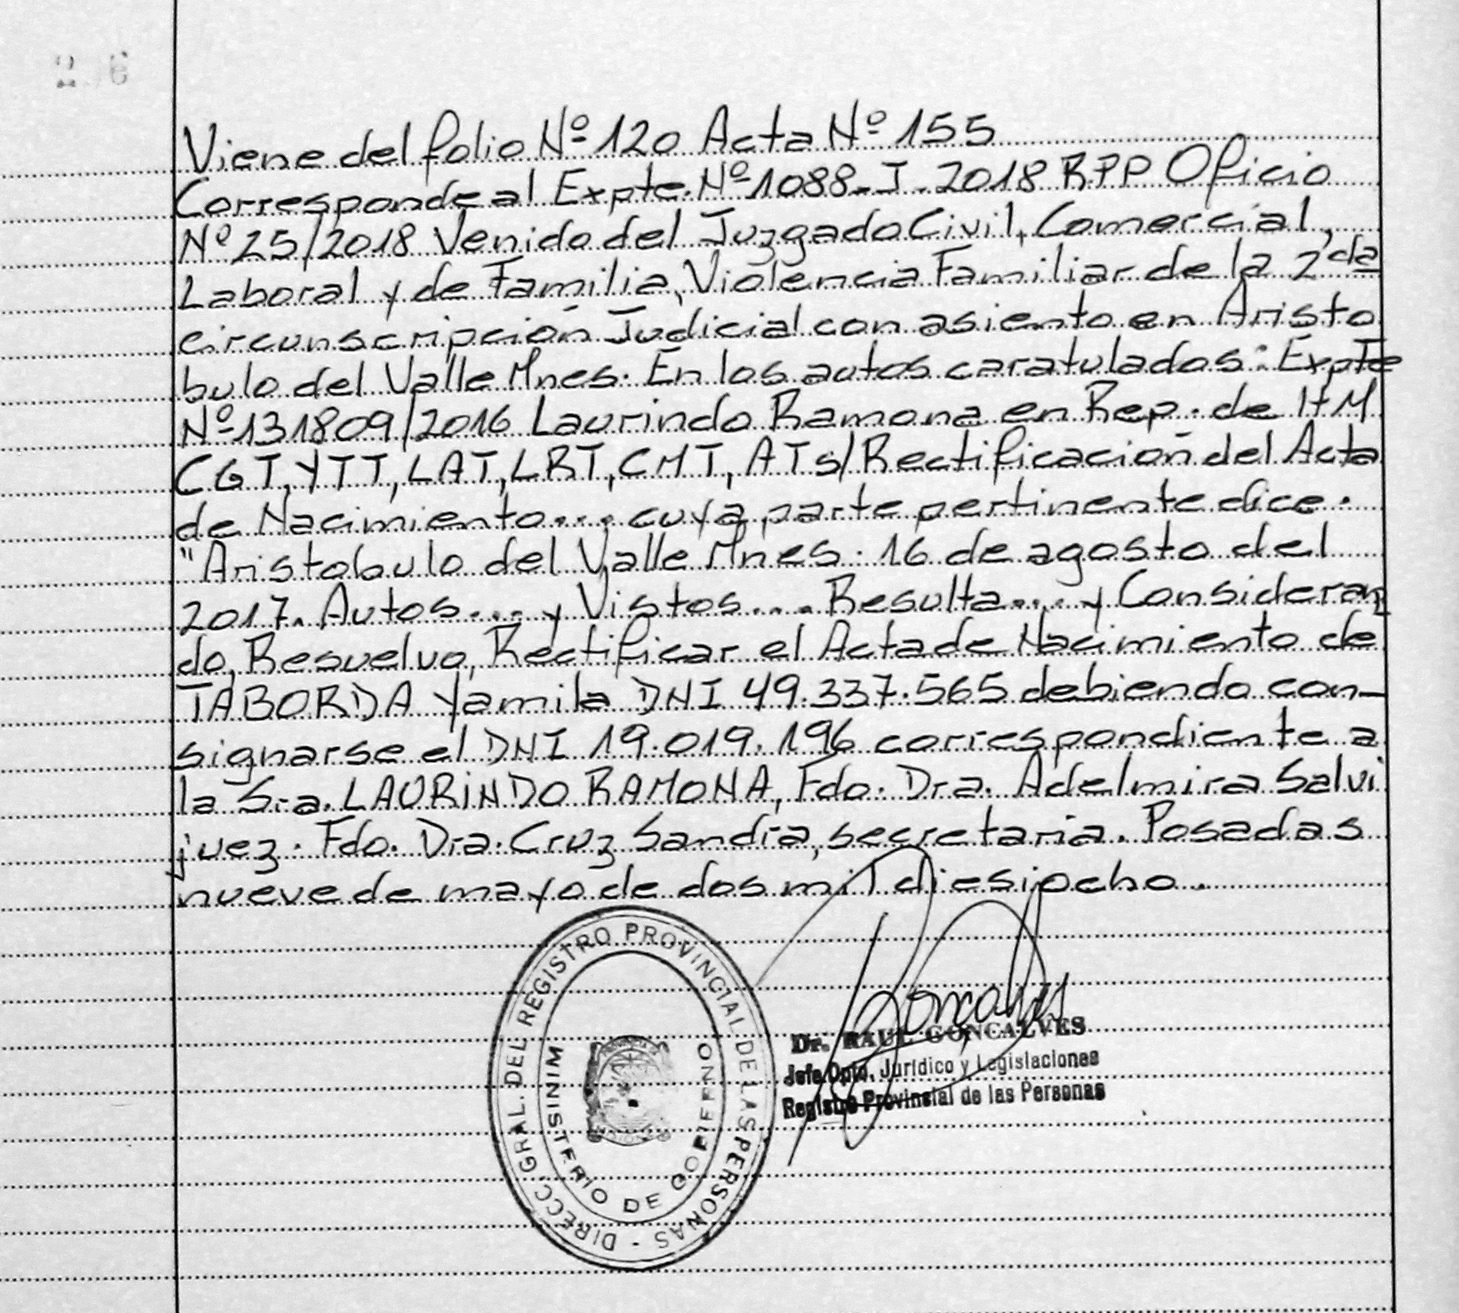 Viene del folio Nº 120 Acta Nº 155
Corresponde al Expte. Nº 1088-I-2018 RPP Oficio
Nº 25/2018 Venido del Juzgado Civil, Comercial,
Laboral y de Familia, Violencia Familiar de la 2da
circunscripción Judicial con asiento en Aristo
bulo del Valle Mnes. En los autos caratulados: Expte
Nº 131809/2016 Laurindo Ramona en Rep. de HM
CGT, YTT, LAT, LRT, CMT, ATs/Rectificación del Acta
de Nacimiento... cuya parte pertinente dice.
"Aristobulo del Valle Mnes. 16 de agosto del
2017. Autos.... y Vistos.... Resulta... y Consideran
do, Resuelvo, Rectificar el Acta de Nacimiento de
TABORDA Yamila DNI 49.337.565 debiendo con-
signarse el DNI 19.019.196 correspondiente a
la Sra. LAURINDO RAMONA, Fdo. Dra. Adelmira Salvi
juez. Fdo. Dra. Cruz Sandra, secretaria. Posadas
nueve de mayo de dos mil diesiocho.
DIRECC. GRAL. DEL REGISTRO PROVINCIAL DE LAS PERSONAS -
MINISTERIO DE GOBIERNO
Goncalves
Dr. RAUL GONCALVES
Jefe Dpto. Jurídico y Legislaciones
Registro Provincial de las Personas